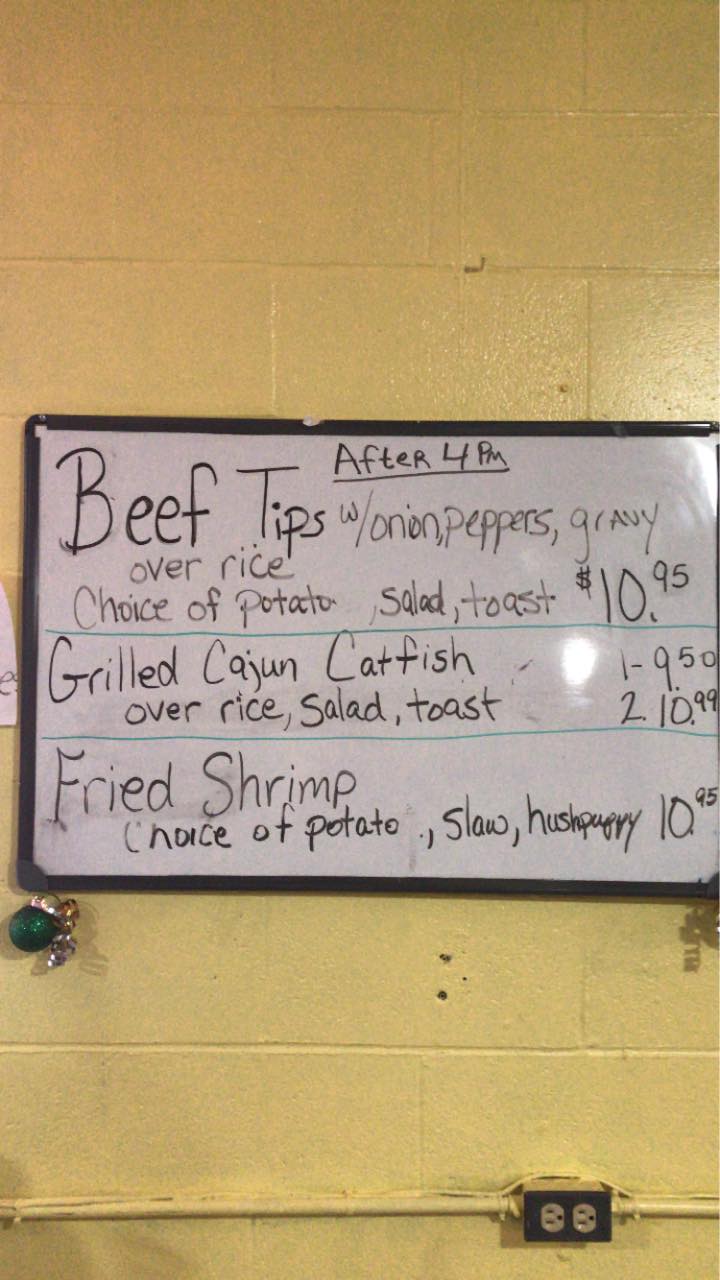 After 4 Pm
Beef Tips w/onion, peppers, gravy
over rice
Choice of potato, salad, toast $10.95
Grilled Cajun Catfish 1- 9.50
over rice, salad, toast 2. 10.99
Fried Shrimp
Choice of potato., slaw, hushpuppy 10.95